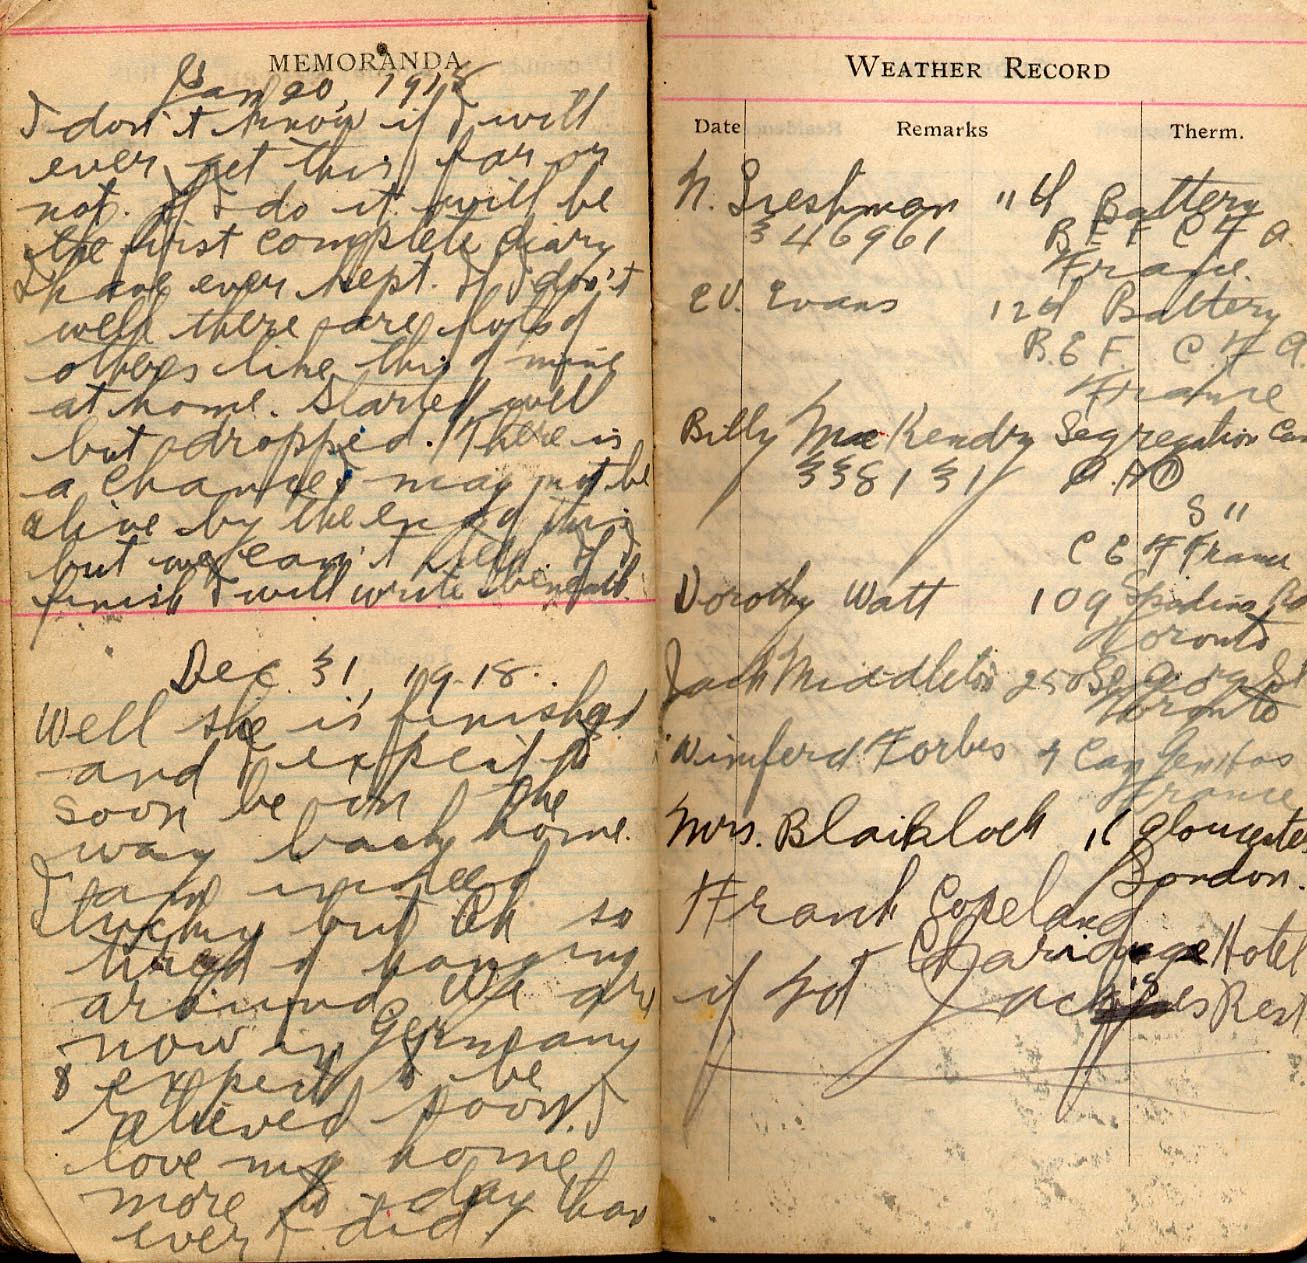 MEMORANDA
Jan 20, 1918
I don't know if I will
ever get this far or
not. If I do it will be
the first complete diary
I have ever kept. If I don't
well there are lots of
others like this of mine
at home. Started well
but dropped. There is
a chance I may not be
alive by the end of this
but we can't tell. If I
finish I will write beneath
Dec 31, 1918.
Well she is finished
and I expect to
soon be on the
way back home.
I am indeed
lucky but Oh so
tired of hanging
around. We are
now in Germany
& expect to be
relieved soon. I
love my home
more to day than
ever I did.
WEATHER RECORD
Date Remarks Therm.
N. 11th Battery
346961 B E F C F A
France.
W. Evans 12th Battery
B.E F. C. F A.
France
Billy MacKendry Segregation Cam
338131
S 11
C E F France
Dorothy Watt 109 Spadina Rd
Toronto
Jack Middleton 250 St George St
Toronto
Forbes
France
Mrs. Blaiklock 16 Glouceste
London.
Frank Copeland
Claridge Hotel
if not Jack's Rest